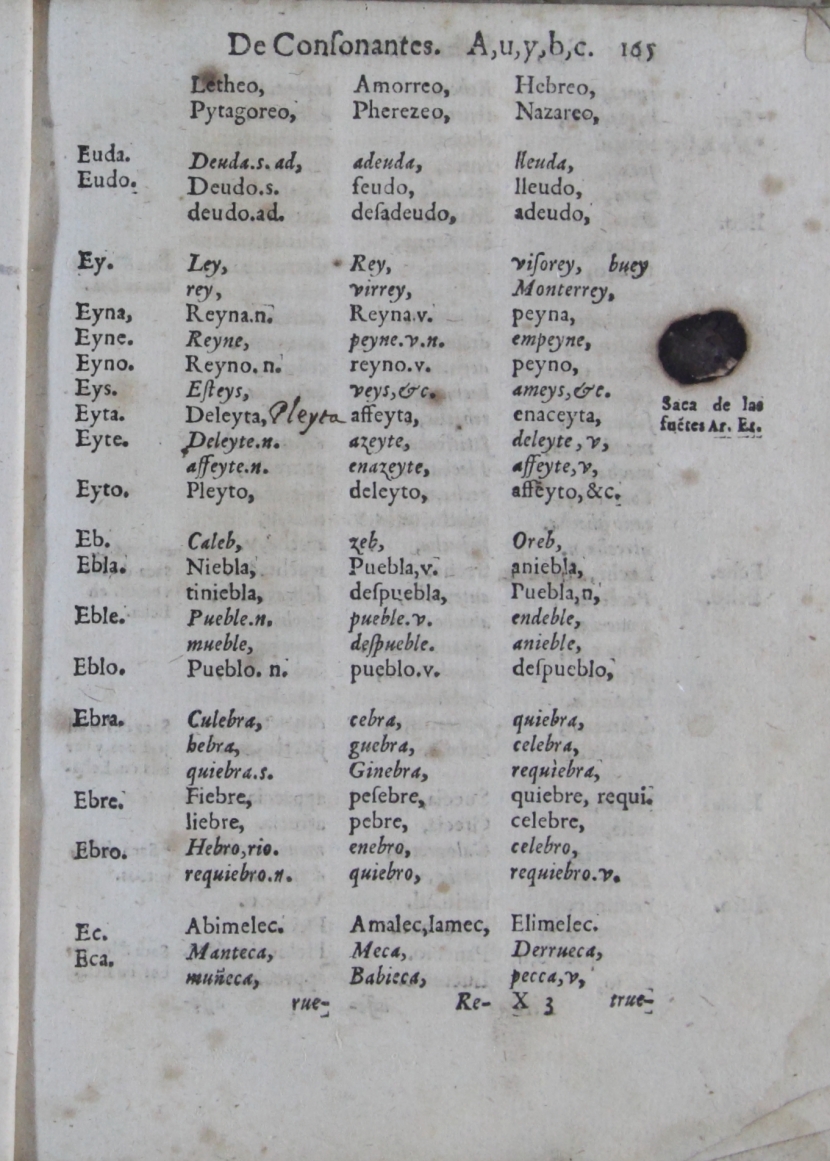 De Conſonantes. A,u,y,b,c. 165
Letheo, Amorreo, Hebreo,
Pytagoreo, Pherezeo, Nazareo,
Euda. Deuda.s.ad, adeuda, lleuda,
Eudo. Deudo.s. feudo, lleudo,
deudo.ad. deſadeudo, adeudo,
Ey. Ley, Rey, viſorey, buey
rey, virrey, Monterrey,
Eyna, Reyna.n. Reyna.v. peyna,
Eyne. Reyne, peyne.v.n. empeyne,
Eyno. Reyno.n. reyno.v. peyno,
Eys. Eſteys, veys,&c. ameys,&c.
Eyta. Deleyta, Pleyta affeyta, enaceyta,
Saca de las
fuētes Ar. Er.
Eyte. Deleyte.n. azeyte, deleyte,v,
affeyte.n. enazeyte, affeyte,v,
Eyto. Pleyto, deleyto, affeyto,&c.
Eb. Caleb, zeb, Oreb,
Ebla. Niebla, Puebla,v. aniebla,
tiniebla, deſpuebla, Puebla,n,
Eble. Pueble.n. pueble.v. endeble,
mueble, deſpueble. anieble,
Eblo. Pueblo. n. pueblo.v. deſpueblo,
Ebra. Culebra, cebra, quiebra,
hebra, guebra, celebra,
quiebra.s. Ginebra, requiebra,
Ebre. Fiebre, peſebre, quiebre, requi.
liebre, pebre, celebre,
Ebro. Hebro,rio. enebro, celebro,
requiebro.n. quiebro, requiebro.v.
Ec. Abimelec. Amalec,Iamec, Elimelec.
Eca. Manteca, Meca, Derrueca,
muñeca, Babieca, pecca,v,
rue- Re- X 3 true-